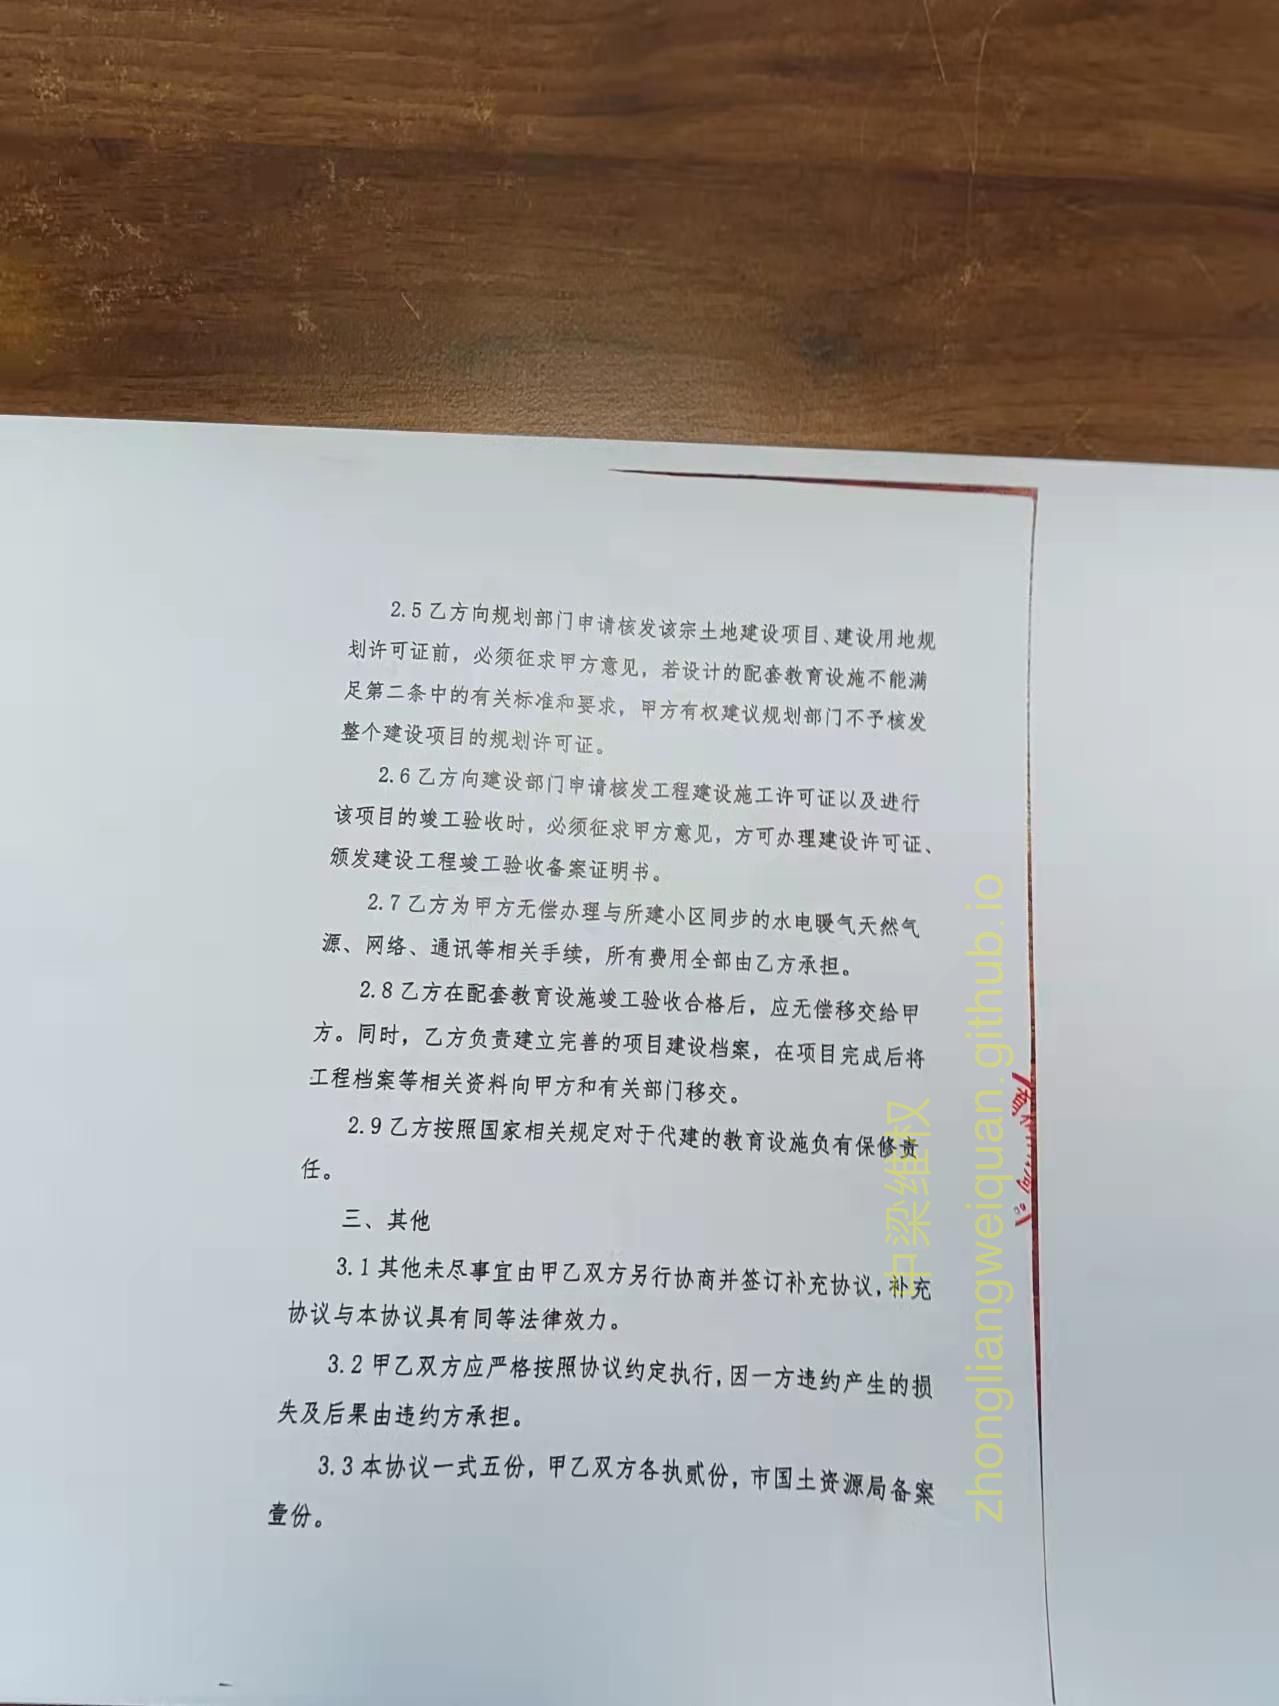 2.5 乙方向规划部门申请核发该宗土地建设项目、建设用地规
划许可证前，必须征求甲方意见，若设计的配套教育设施不能满
足第二条中的有关标准和要求，甲方有权建议规划部门不予核发
整个建设项目的规划许可证。
2.6 乙方向建设部门申请核发工程建设施工许可证以及进行
该项目的竣工验收时，必须征求甲方意见，方可办理建设许可证、
颁发建设工程竣工验收备案证明书。
2.7 乙方为甲方无偿办理与所建小区同步的水电暖气天然气
源、网络、通讯等相关手续，所有费用全部由乙方承担。
2.8 乙方在配套教育设施竣工验收合格后，应无偿移交给甲
方。同时，乙方负责建立完善的项目建设档案，在项目完成后将
工程档案等相关资料向甲方和有关部门移交。
2.9 乙方按照国家相关规定对于代建的教育设施负有保修责
任。
三、其他
3.1 其他未尽事宜由甲乙双方另行协商并签订补充协议，补充
协议与本协议具有同等法律效力。
3.2 甲乙双方应严格按照协议约定执行，因一方违约产生的损
失及后果由违约方承担。
3.3 本协议一式五份，甲乙双方各执贰份，市国土资源局备案
壹份。
中梁维权
zhongliangweiquan.github.io